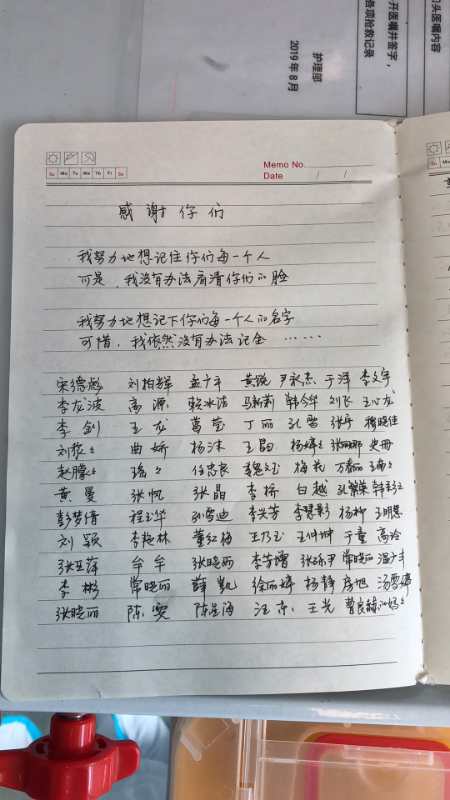 口头医嘱内容
开医嘱并签字，
各项抢救记录
护理部
2019年8月
Memo No.
Date / /
Su Mo Tu We Th Fr Sa
感谢你们
我努力地想记住你们每一个人
可是，我没有办法看清你们的脸
我努力地想记下你们每一个人的名字
可惜，我依然没有办法记全……
宋德彪 刘柏辉 孟广平 黄锐 尹永杰 于泽 李文宇
李龙波 高源 赖冰洁 马新莉 韩今华 刘飞 王心龙
李剑 王龙 葛莹 丁丽 孔雪 张丹 穆晓佳
曲娇 杨沫 王晶 史册
赵腾 瑶々 任忠良 梅花
黄曼 张帆 张晶 李桥 白越
彭梦倩 程玉华 孙雪迪 李兴芳 李慧影 杨柳 王明思
刘颖 李艳林 董红梅 王乃玉 王仲坤 于童 高冷
张亚萍 牟牟 张晓丽 李芳增 常晓丽
李彬 常晓丽 薛凯 徐丽婷 杨静 房旭 汤雪婷
张晓丽 陈雯 陈星海 王光